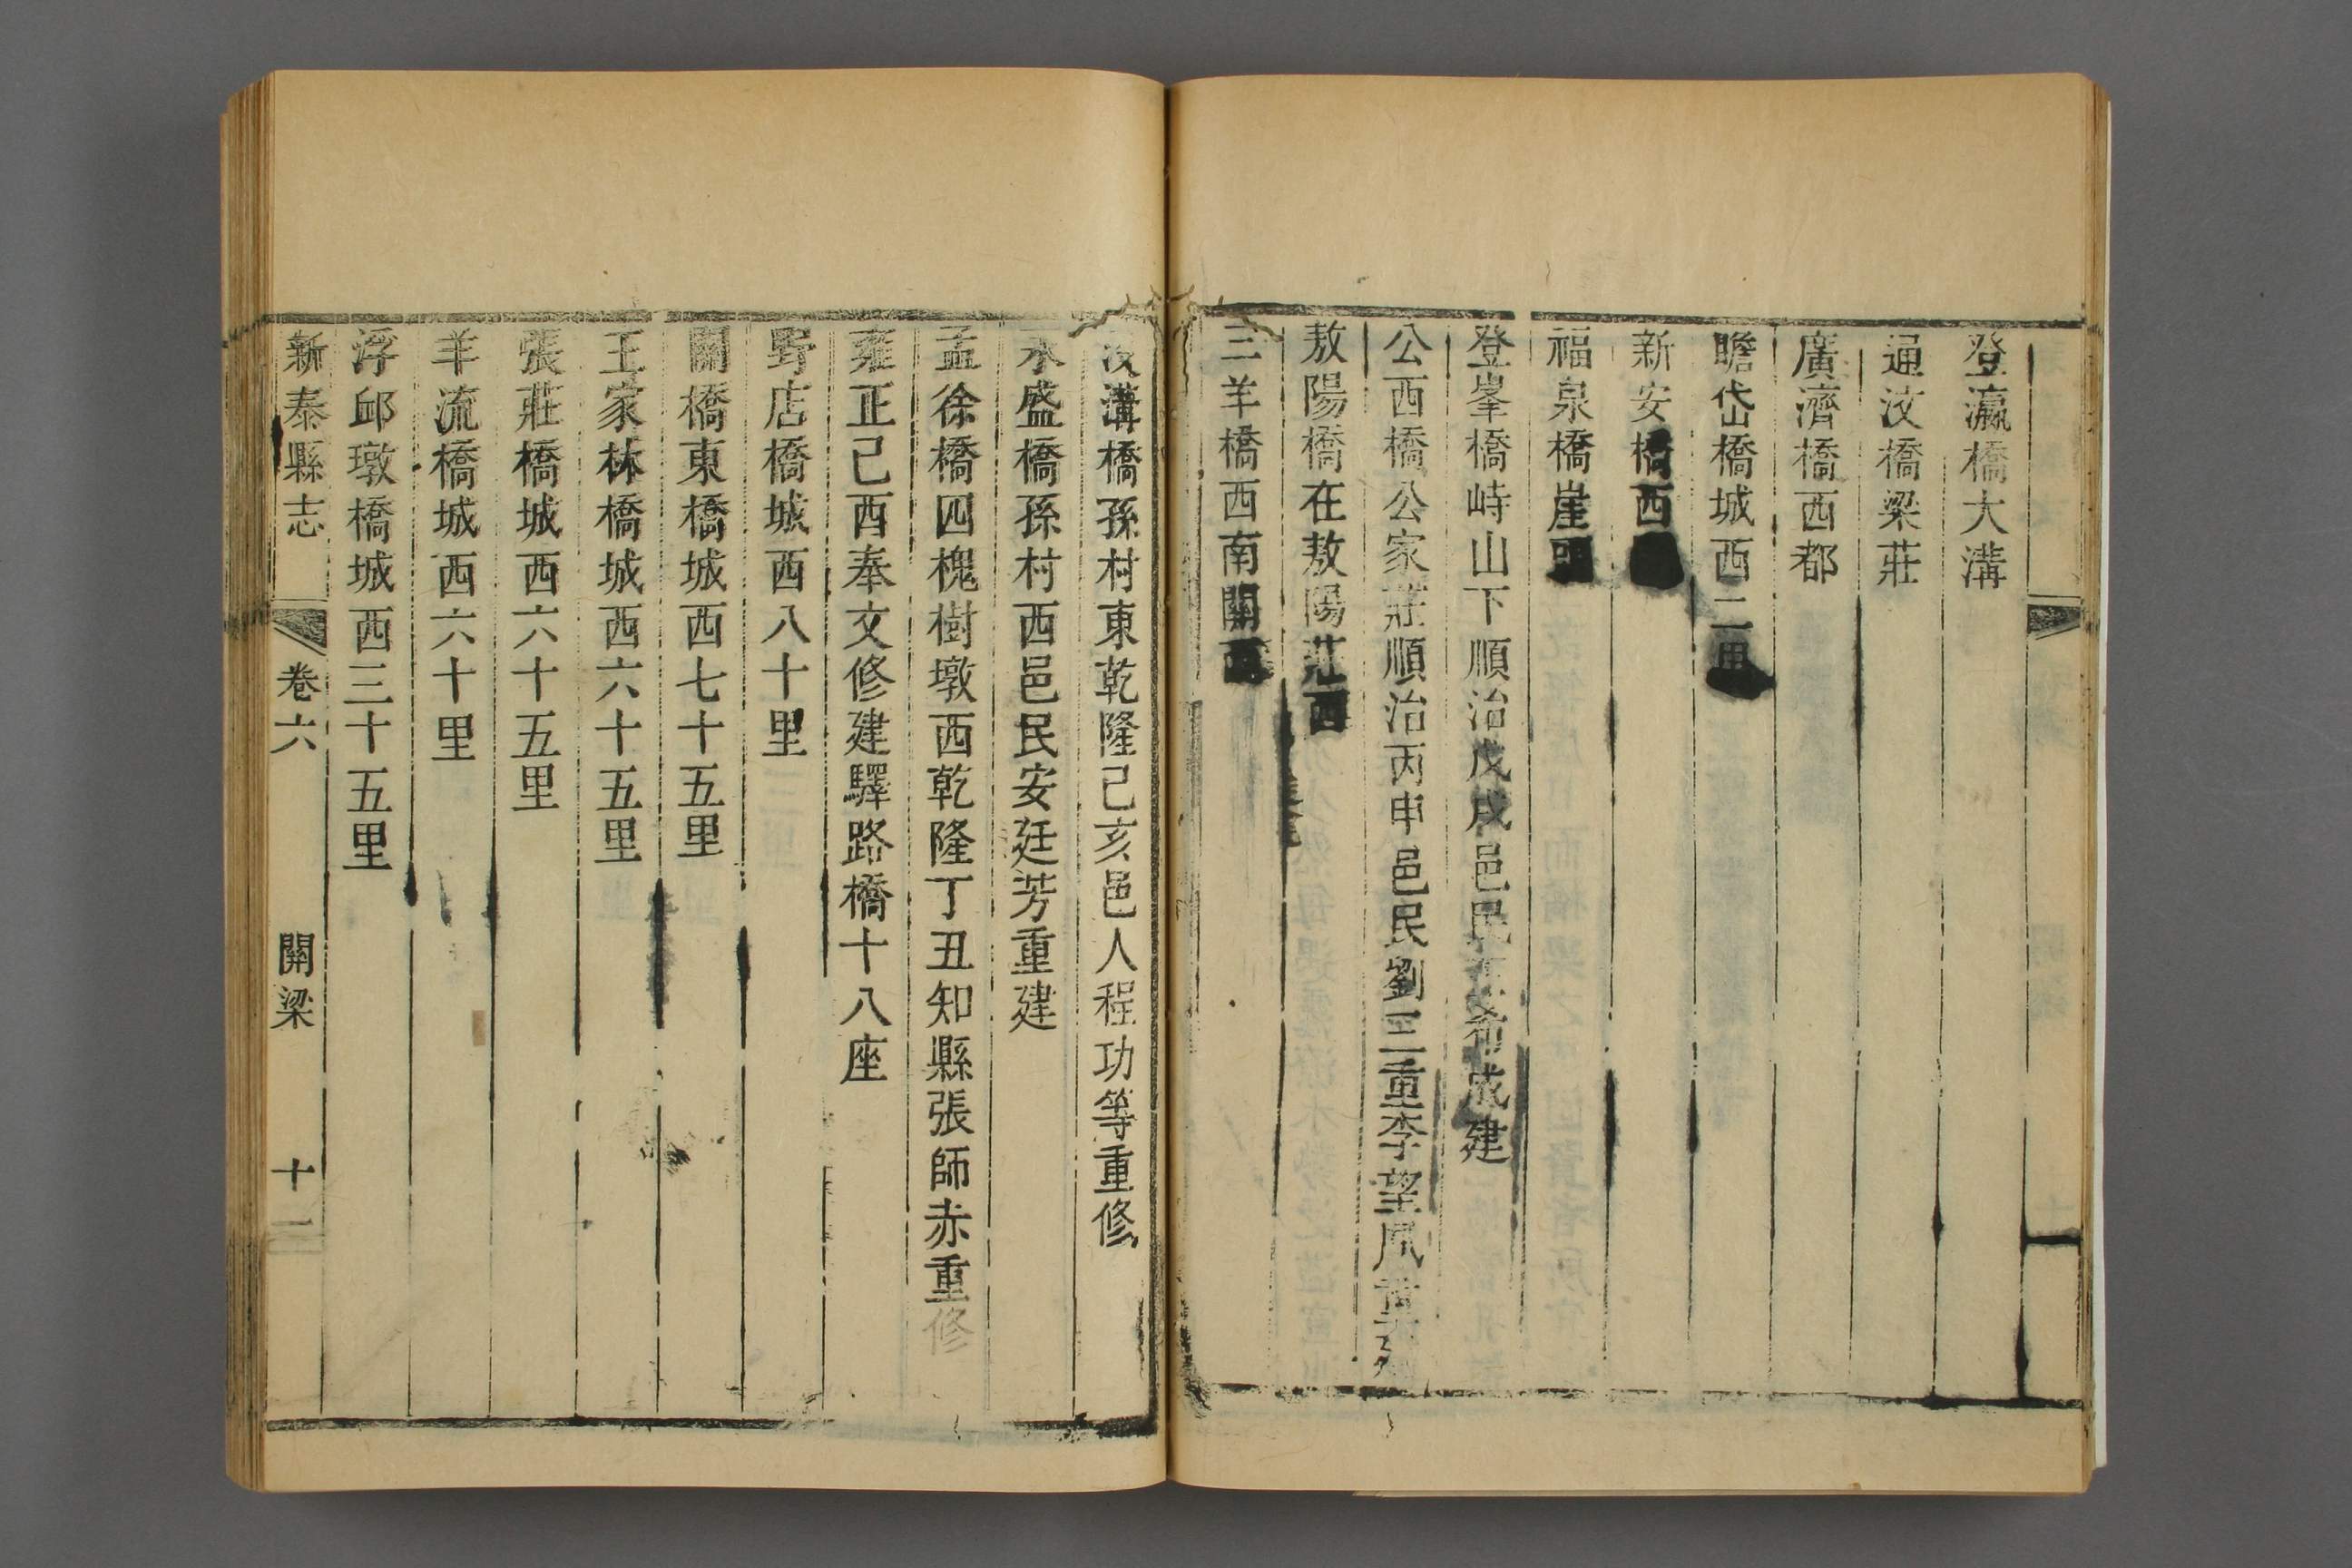 登瀛橋大溝
通汶橋梁莊
廣濟橋西都
瞻岱橋城西二里
新安橋西
福泉橋崖頭
登峯橋峙山下順治戊戌邑民希成建
公西橋公家莊順治丙申邑民劉三重李望鳳重建
敖陽橋在敖陽莊西
三羊橋西南關西
汶溝橋孫村東乾隆己亥邑人程功等重修
永盛橋孫村西邑民安廷芳重建
孟徐橋四槐樹墩西乾隆丁丑知縣張師赤重修
雍正己酉奉文修建驛路橋十八座
野店橋城西八十里
關橋東橋城西七十五里
王家林橋城西六十五里
張莊橋城西六十五里
羊流橋城西六十里
浮邱墩橋城西三十五里
新泰縣志 卷六 關梁 十一